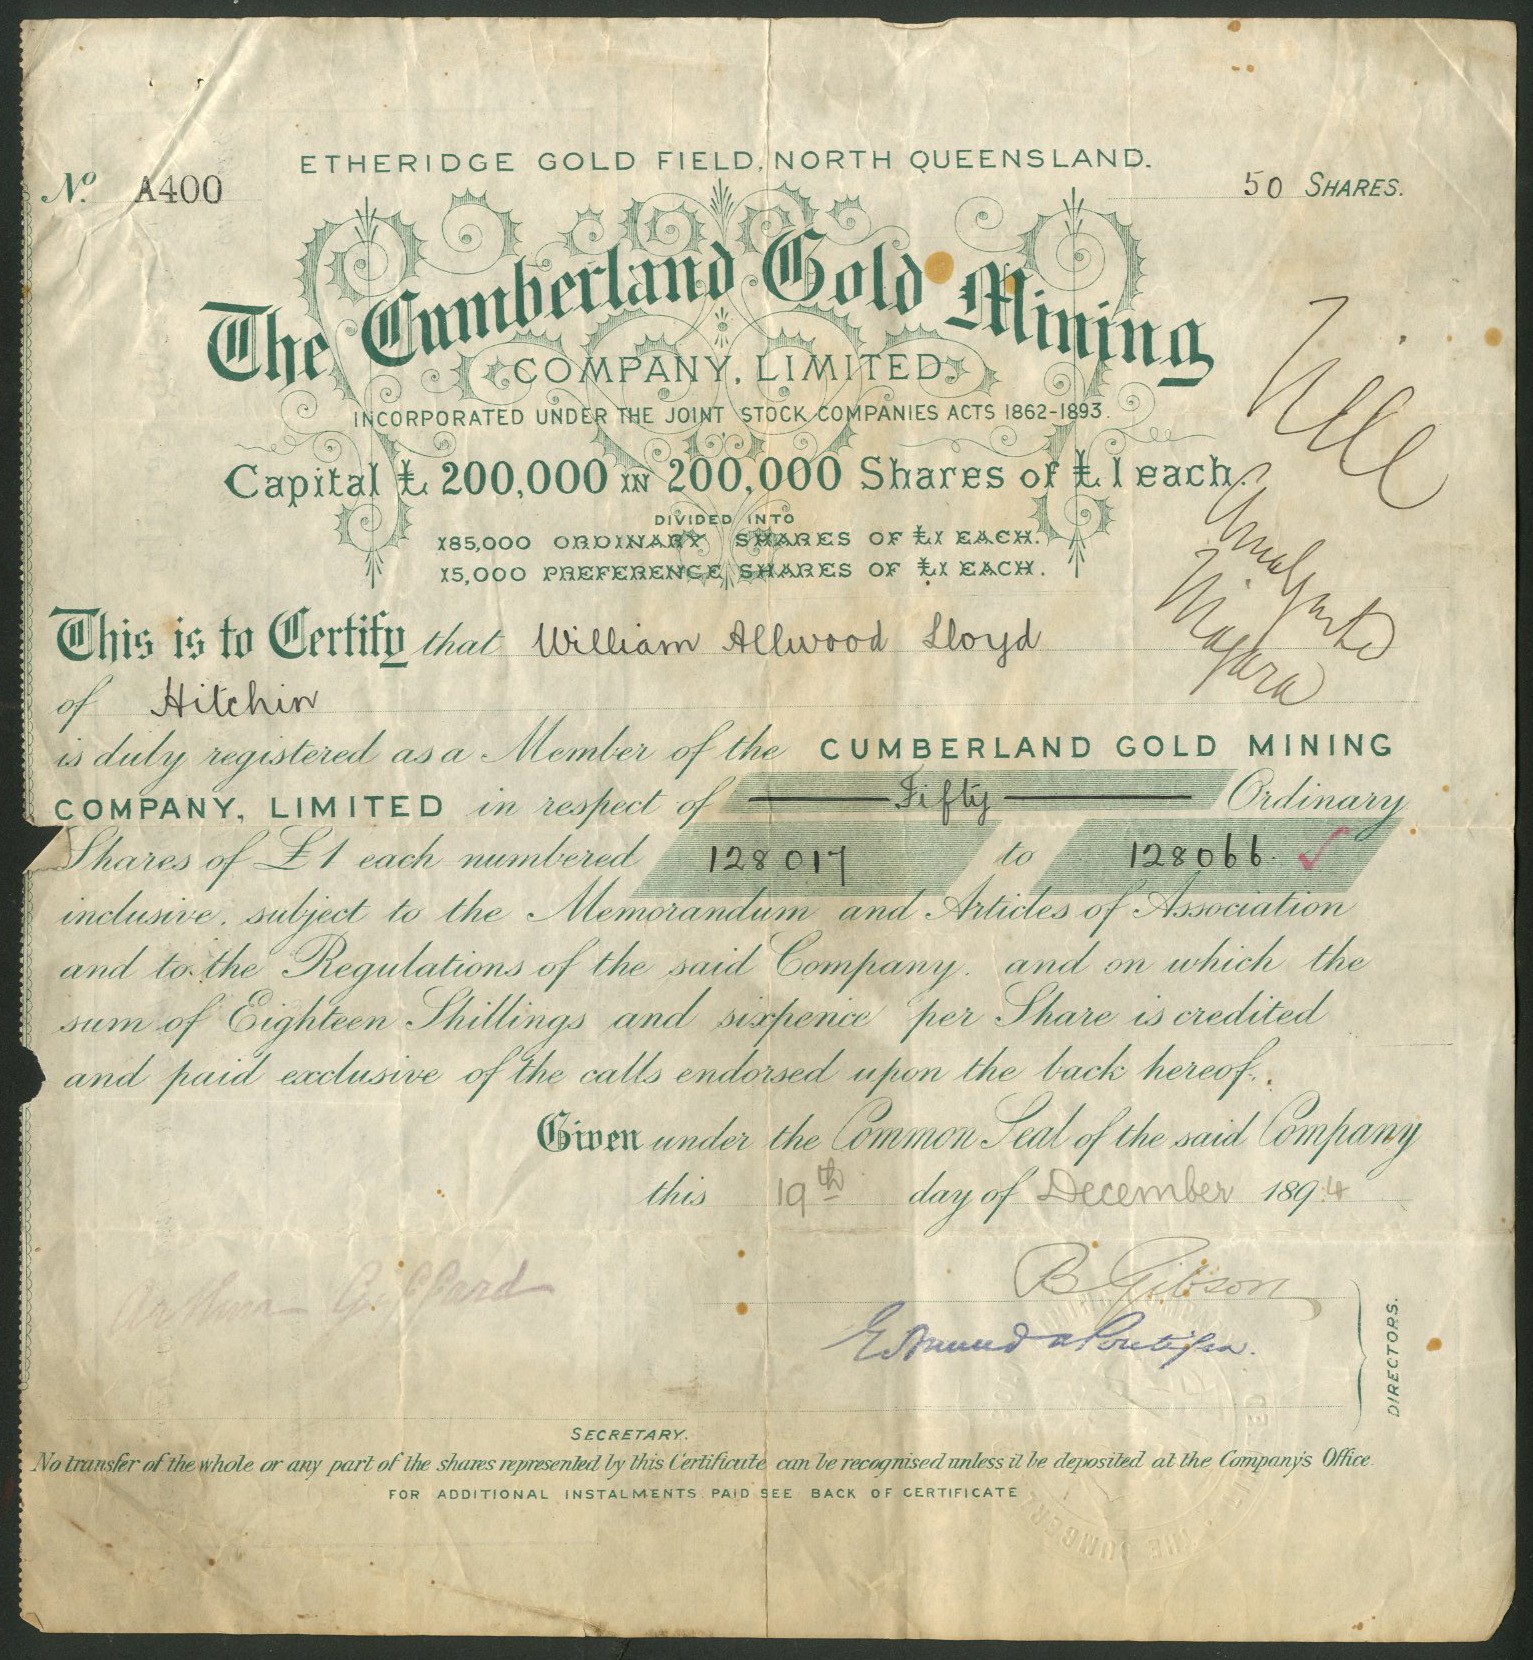 ETHERIDGE GOLD FIELD, NORTH QUEENSLAND.
No. A400
50 SHARES.
The Cumberland Gold Mining
COMPANY, LIMITED
INCORPORATED UNDER THE JOINT STOCK COMPANIES ACTS 1862-1893.
Capital £200,000 IN 200,000 Shares of £1 each.
DIVIDED INTO
185,000 ORDINARY SHARES OF £1 EACH.
15,000 PREFERENCE SHARES OF £1 EACH.
Niagara
This is to Certify that William Allwood Lloyd
of Hitchin
is duly registered as a Member of the CUMBERLAND GOLD MINING
COMPANY, LIMITED in respect of Fifty Ordinary
Shares of £1 each numbered 128017 to 128066.
inclusive, subject to the Memorandum and Articles of Association
and to the Regulations of the said Company, and on which the
sum of Eighteen Shillings and sixpence per Share is credited
and paid exclusive of the calls endorsed upon the back hereof.
Given under the Common Seal of the said Company
this 19th day of December 1894
B Gibson
Arthur Giffard
Edmund A Pontifex.
DIRECTORS.
SECRETARY.
No transfer of the whole or any part of the shares represented by this Certificate can be recognised unless it be deposited at the Company's Office.
FOR ADDITIONAL INSTALMENTS PAID SEE BACK OF CERTIFICATE